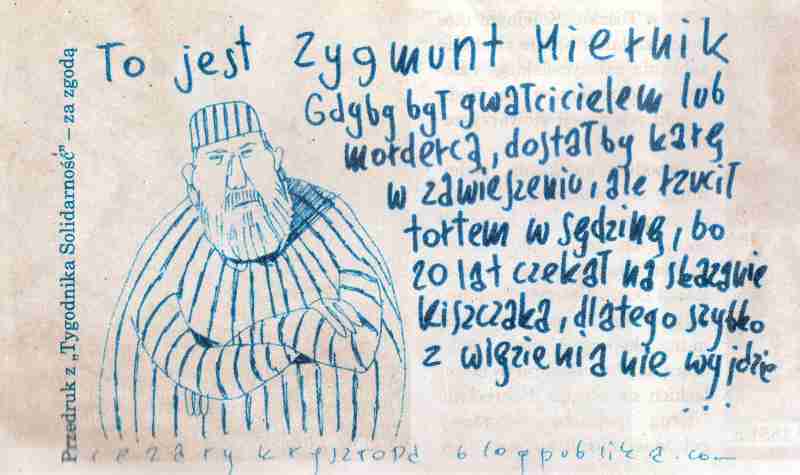 To jest Zygmunt Miernik
Gdyby był gwałcicielem lub
mordercą, dostałby karę
w zawieszeniu, ale rzucił
tortem w sędzinę, bo
20 lat czekał na skazanie
kiszczaka, dlatego szybko
z więzienia nie wyjdzie
...
Przedruk z „Tygodnika Solidarność” – za zgodą
cezary krysztopa blogpublika.com